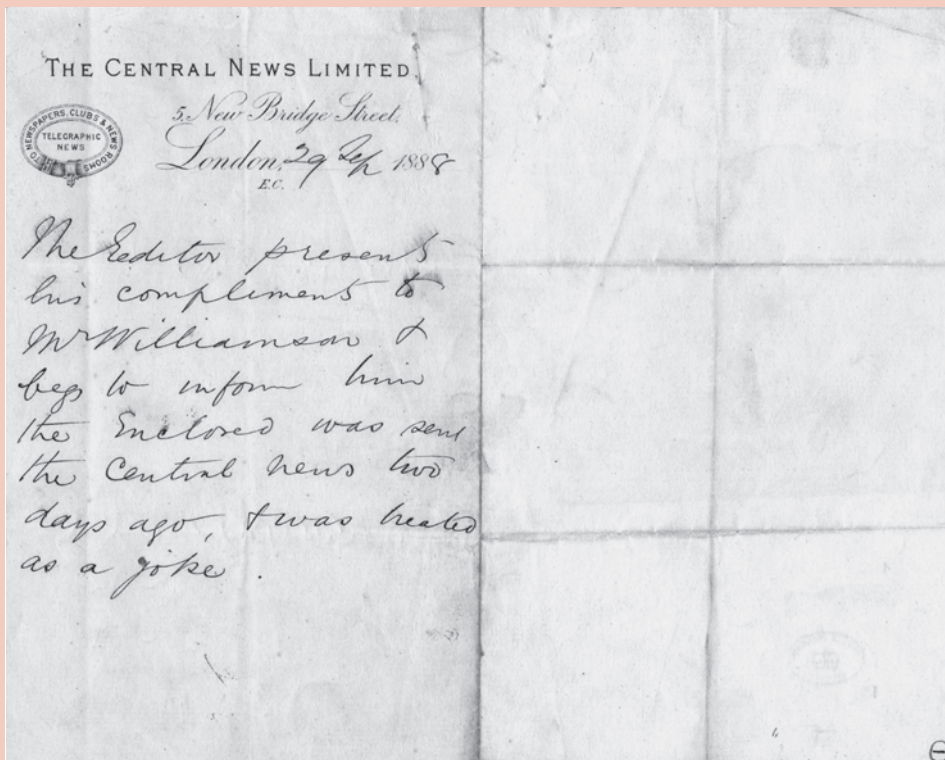 THE CENTRAL NEWS LIMITED.
5, New Bridge Street,
TO NEWSPAPERS, CLUBS & NEWS ROOMS
TELEGRAPHIC
NEWS
London, 29 Sep 1888
E.C.
The Editor presents
his compliments to
Mr Williamson &
begs to inform him
the enclosed was sent
the Central News two
days ago, & was treated
as a joke.